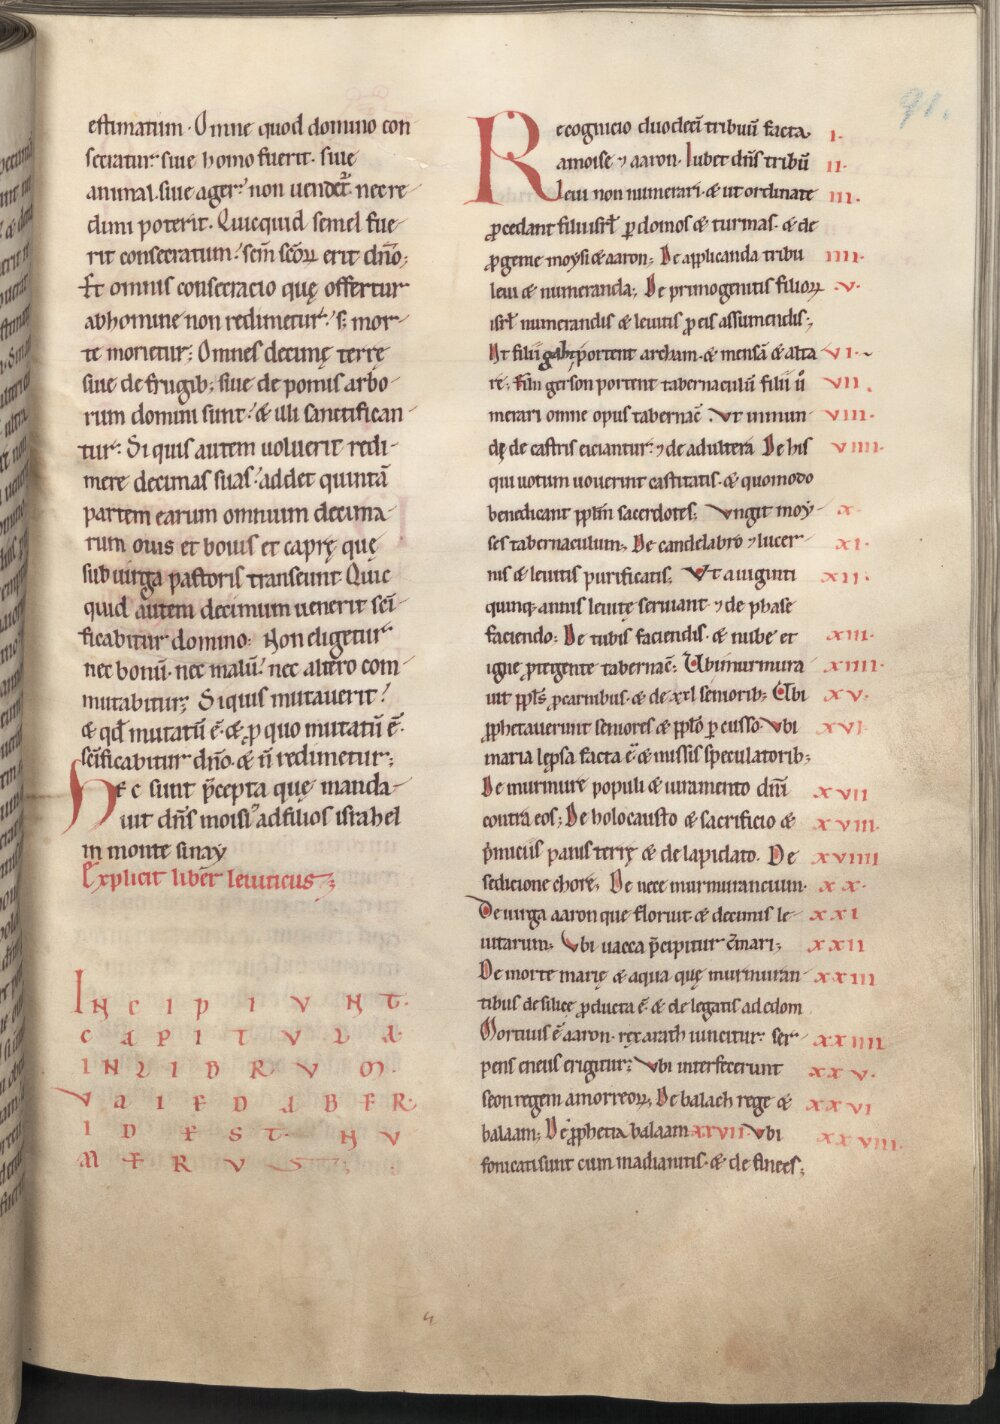 91.
estimatum · Omne quod domino con
secratur siue homo fuerit · siue
animal · siue ager · non uendet̄ · nec re
dimi poterit · Quicquid semel fue-
rit consecratum · sc̄m sc̄oꝝ erit dn̄o;
Et omnis consecracio quę offertur
ab homine non redimetur · s; mor-
te morietur; Omnes decimę terrę
siue de frugib; siue de pomis arbo-
rum domini sunt · & illi sanctifican-
tur · Si quis autem uoluerit redi-
mere decimas suas · addet quintā
partem earum omnium decima-
rum ouis et bouis et caprę quę
sub uirga pastoris transeunt Quic-
quid autem decimum uenerit sc̄i-
ficabitur domino · Non eligetur
nec bonū · nec malū · nec altero com-
mutabitur; Si quis mutauerit ·
& qd̄ mutatū ē · & ꝓ quo mutatū ē ·
sc̄ificabitur dn̄o · & n̄ redimetur;
Hęc sunt p̄cepta quę manda-
uit dn̄s moisi ad filios israhel
in monte sinay
Explicit liber leuiticus;
INCIPIVNT
CAPITVLA
IN LIBRVM
VAIEDABER
ID EST · NV
MERVS;
Recognicio duodecī tribuū facta I.
a moise ⁊ aaron · Iubet dn̄s tribū II.
leui non numerari · & ut ordinate III.
ꝓcedant filii isrl̄ ꝑ domos & turmas · & de
ꝓgenie moysi & aaron; De applicanda tribu IIII.
leui & numeranda; De primogenitis filioꝝ V.
isrl̄ numerandis & leuitis ꝓ eis assumendis;
Vt filii portent archam · & mensā & alta VI.
re · Filii gerson portent tabernaculū filii ū VII.
merari omne opus tabernac̄ Vt inmun VIII.
dę de castris eiciantur · ⁊ de adultera De his VIIII.
qui uotum uouerint castitatis · & quomodo
benedicant ppl̄m sacerdotes; Vngit moy- X.
ses tabernaculum; De candelabro ⁊ lucer- XI.
nis & leuitis purificatis; Vt a uiginti XII.
quinq; annis leuitę seruiant · ⁊ de phase
faciendo; De tubis faciendis · & nube et XIII.
igne ꝓtegente tabernac̄; Vbi murmura XIIII.
uit ppl̄s ꝓ carnibus · & de xxl seniorib; Vbi XV.
ꝓphetauerunt seniores & ppl̄o ꝑcusso Vbi XVI.
maria lęprsa facta ē & missis speculatorib;
De murmure populi & iuramento dn̄i XVII
contra eos; De holocausto & sacrificio & XVIII.
p̄miciis panis terrę & de lapidato · De XVIIII
sedicione chore; De nece murmurancium · XX.
De uirga aaron que floruit · & decimis le- XXI
uitarum; Vbi uacca p̄cipitur c̄mari; XXII
De morte marię & aqua quę murmuran XXIII
tibus de silice ꝓducta ē · & de legatis ad edom
Mortuus ē aaron · rex arath uincitur · ser XXIIII
pens eneus erigitur; Vbi interfecerunt XXV.
seon regem amorreoꝝ; De balach rege & XXVI
balaam; De ꝓphetia balaam XXVII Vbi XXVIII.
fonicati sunt cum madianitis · & de finees;